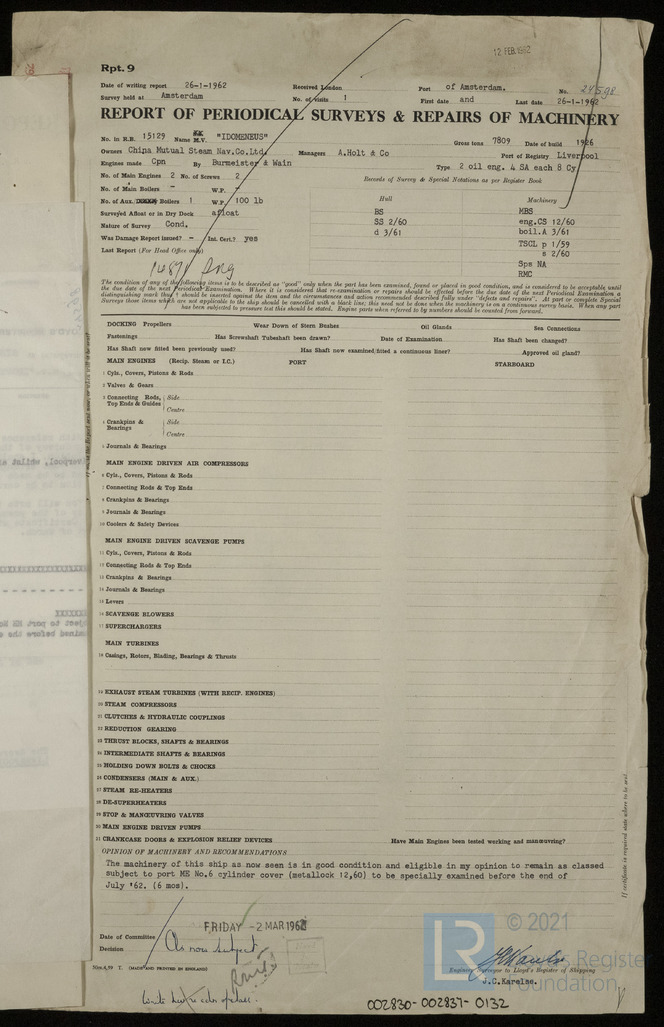 12 FEB 1962
Rpt. 9
Date of writing report 26-1-1962 Received London Port of Amsterdam. No.
Survey held at Amsterdam No. of visits 1 First date and Last date 26-1-1962
REPORT OF PERIODICAL SURVEYS & REPAIRS OF MACHINERY
No. in R.B. 15129 Name M.V. "IDOMENEUS" Gross tons 7809 Date of build 1926
Owners China Mutual Steam Nav.Co.Ltd. Managers A.Holt & Co Port of Registry Liverpool
Engines made Cpn By Burmeister & Wain Type 2 oil eng. 4 SA each 8 Cy
No. of Main Engines 2 No. of Screws 2 Records of Survey & Special Notations as per Register Book
No. of Main Boilers - W.P. -
No. of Aux. Boilers 1 W.P. 100 lb Hull Machinery
Surveyed Afloat or in Dry Dock afloat BS MBS
Nature of Survey Cond. SS 2/60 eng.CS 12/60
Was Damage Report issued? - Int. Cert.? yes d 3/61 boil.A 3/61
Last Report (For Head Office only) TSCL p 1/59
s 2/60
Sps NA
RMC
The condition of any of the following items is to be described as "good" only when the part has been examined, found or placed in good condition, and is considered to be acceptable until
the due date of the next Periodical Examination. Where it is considered that re-examination or repairs should be effected before the due date of the next Periodical Examination a
distinguishing mark † should be inserted against the item and the circumstances and action recommended described fully under "defects and repairs". At part or complete Special
Surveys those items which are not applicable to the ship should be cancelled with a black line; this need not be done when the machinery is on a continuous survey basis. When any part
has been subjected to pressure this should be stated. Engine parts when referred to by numbers should be counted from forward.
DOCKING Propellers Wear Down of Stern Bushes Oil Glands Sea Connections
Fastenings Has Screwshaft Tubeshaft been drawn? Date of Examination Has Shaft been changed?
Has Shaft now fitted been previously used? Has Shaft now examined/fitted a continuous liner? Approved oil gland?
MAIN ENGINES (Recip. Steam or I.C.) PORT STARBOARD
1 Cyls., Covers, Pistons & Rods
2 Valves & Gears
3 Connecting Rods, Top Ends & Guides Side
Centre
4 Crankpins & Bearings Side
Centre
5 Journals & Bearings
MAIN ENGINE DRIVEN AIR COMPRESSORS
6 Cyls., Covers, Pistons & Rods
7 Connecting Rods & Top Ends
8 Crankpins & Bearings
9 Journals & Bearings
10 Coolers & Safety Devices
MAIN ENGINE DRIVEN SCAVENGE PUMPS
11 Cyls., Covers, Pistons & Rods
12 Connecting Rods & Top Ends
13 Crankpins & Bearings
14 Journals & Bearings
15 Levers
16 SCAVENGE BLOWERS
17 SUPERCHARGERS
MAIN TURBINES
18 Casings, Rotors, Blading, Bearings & Thrusts
19 EXHAUST STEAM TURBINES (WITH RECIP. ENGINES)
20 STEAM COMPRESSORS
21 CLUTCHES & HYDRAULIC COUPLINGS
22 REDUCTION GEARING
23 THRUST BLOCKS, SHAFTS & BEARINGS
24 INTERMEDIATE SHAFTS & BEARINGS
25 HOLDING DOWN BOLTS & CHOCKS
26 CONDENSERS (MAIN & AUX.)
27 STEAM RE-HEATERS
28 DE-SUPERHEATERS
29 STOP & MANŒUVRING VALVES
30 MAIN ENGINE DRIVEN PUMPS
31 CRANKCASE DOORS & EXPLOSION RELIEF DEVICES Have Main Engines been tested working and manœuvring?
OPINION OF MACHINERY AND RECOMMENDATIONS
The machinery of this ship as now seen is in good condition and eligible in my opinion to remain as classed
subject to port ME No.6 cylinder cover (metallock 12,60) to be specially examined before the end of
July '62. (6 mos).
FRIDAY -2 MAR 1962
Date of Committee
Decision As now subject
(MADE AND PRINTED IN ENGLAND)
Engineer Surveyor to Lloyd's Register of Shipping
J.C.Karelse.
If certificate is required state where to be sent
© 2021
LR
Lloyd's Register
Foundation
002830-002837-0132